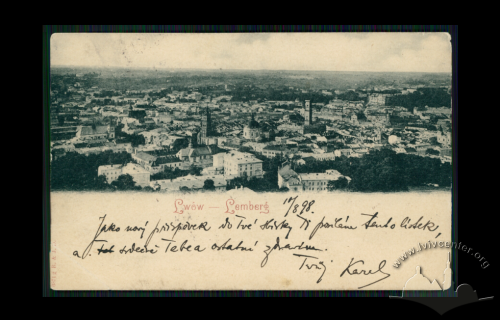 Lwów — Lemberg
10/8 98.
Jako nový příspěvek do Tvé sbírky Ti posílám tento lístek,
a Tebe a ostatní zdravím.
Tvůj Karel
www.lvivcenter.org